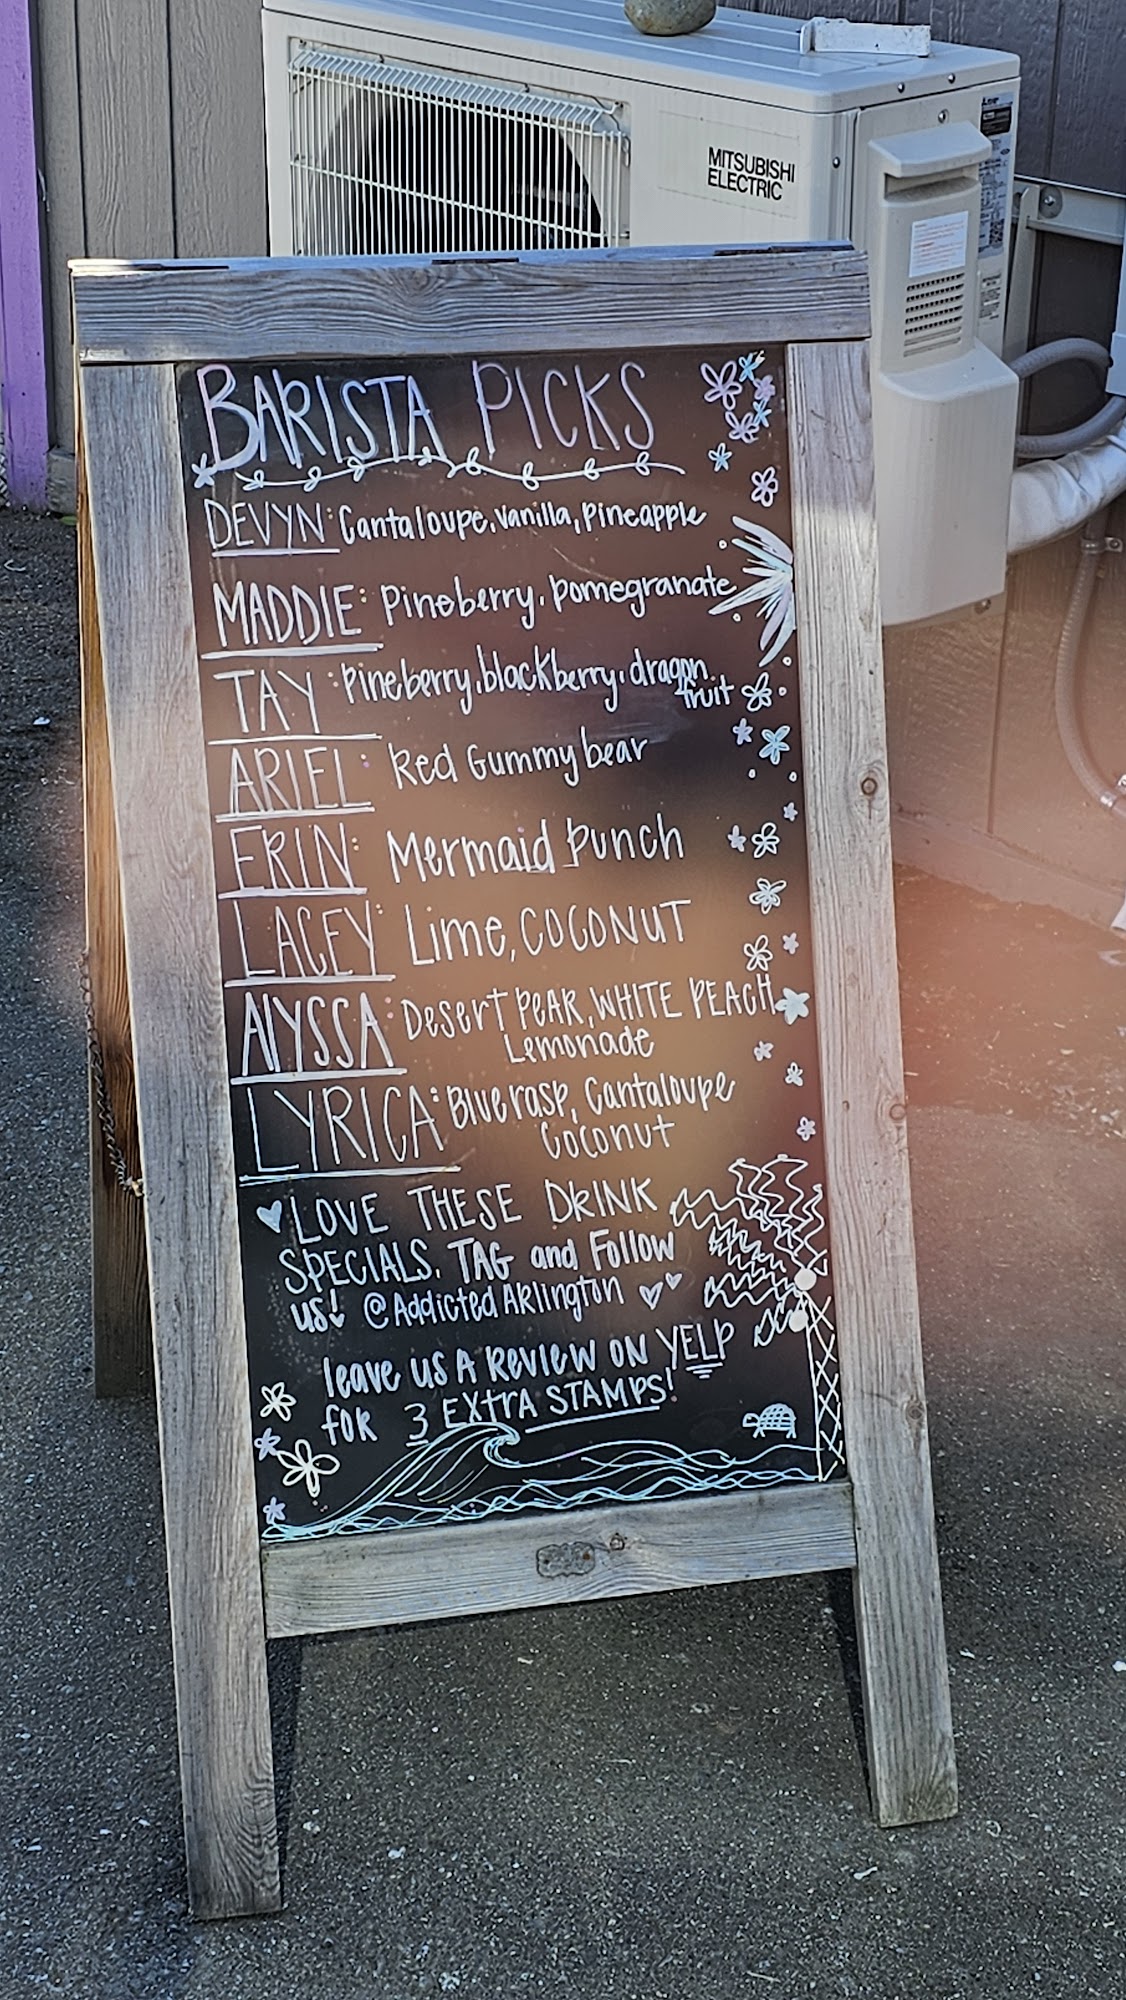 MITSUBISHI
ELECTRIC
BARISTA PICKS
DEVYN: Cantaloupe, vanilla, pineapple
MADDIE: Pineberry, pomegranate
TAY: Pineberry, blackberry, dragon
fruit
ARIEL: Red Gummybear
ERIN: Mermaid punch
LACEY: Lime, COCONUT
AlYSSA: Desert PEAR, WHITE PEACH
Lemonade
LYRICA: Blue rasp, Cantaloupe
Coconut
LOVE THESE DRINK
SPECIALS, TAG and Follow
us! @Addicted Arlington
leave us A Review on YELP
for 3 EXTRA STAMPS!